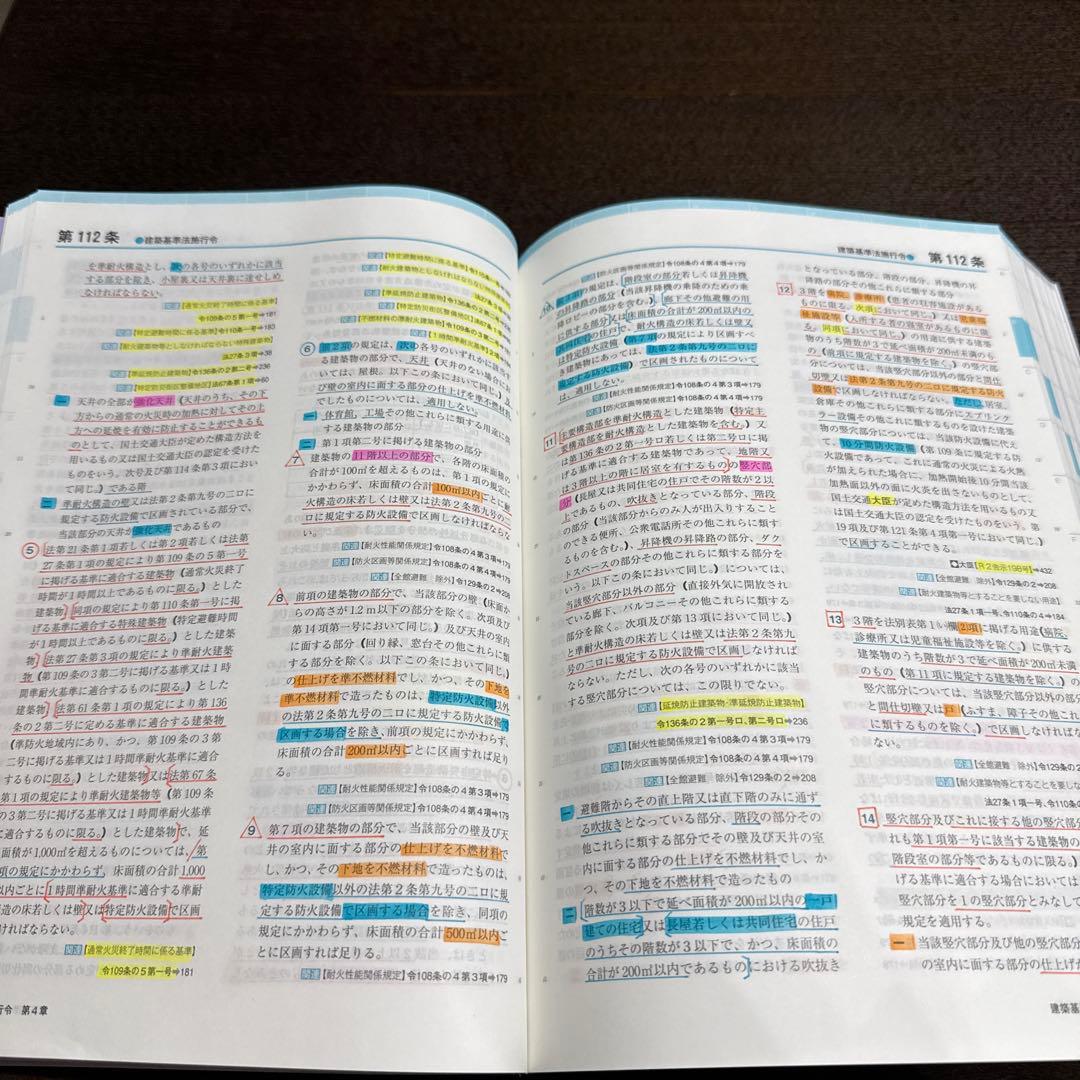 第112条 ●建築基準法施行令
を準耐火構造とし、次の各号のいずれかに該当
する部分を除き、小屋裏又は天井裏に達せしめ
なければならない。
関連【通常火災終了時間に係る基準】
令109条の5第一号⇒181
【特定避難時間に係る基準】令110条一号⇒183
【耐火建築物等としなければならない特殊建築物】
法27条3項⇒38
【準延焼防止建築物】令136条の2第二号⇒236
【特定防災街区整備地区】法67条1項⇒60
一 天井の全部が強化天井(天井のうち、その下
方からの通常の火災時の加熱に対してその上
方への延焼を有効に防止することができるも
のとして、国土交通大臣が定めた構造方法を
用いるもの又は国土交通大臣の認定を受けた
ものをいう。次号及び第114条第3項におい
て同じ。)である階
二 準耐火構造の壁又は法第2条第九号の二ロに
規定する防火設備で区画されている部分で、
当該部分の天井が強化天井であるもの
5 法第21条第1項若しくは第2項若しくは法第
27条第1項の規定により第109条の5第一号
に掲げる基準に適合する建築物(通常火災終了
時間が1時間以上であるものに限る。)とした
建築物、同項の規定により第110条第一号に掲
げる基準に適合する特殊建築物(特定避難時間
が1時間以上であるものに限る。)とした建築
物、法第27条第3項の規定により準耐火建築
物(第109条の3第二号に掲げる基準又は1時
間準耐火基準に適合するものに限る。)とした
建築物、法第61条第1項の規定により第136
条の2第二号に定める基準に適合する建築物
(準防火地域内にあり、かつ、第109条の3第
二号に掲げる基準又は1時間準耐火基準に適合
するものに限る。)とした建築物又は法第67条
第1項の規定により準耐火建築物等(第109条
の3第二号に掲げる基準又は1時間準耐火基準
に適合するものに限る。)とした建築物で、延
面積が1,000㎡を超えるものについては、第
項の規定にかかわらず、床面積の合計1,000
以内ごとに1時間準耐火基準に適合する準耐
造の床若しくは壁又は特定防火設備で区画
ければならない。
関連【通常火災終了時間に係る基準】
令109条の5第一号⇒181
行令 第4章
関連【特定避難時間に係る基準】令110条
関連【耐火建築物としなければならない
法27条3項
【準延焼防止建築物】令136条の2第
【特定防災街区整備地区】法67条1項
【不燃材料の準耐火建築物】
令109条の3第二号
【1時間準耐火基準】2項
6 第2項の規定は、次の各号のいずれかに該当
る建築物の部分で、天井(天井のない場合にお
いては、屋根。以下この条において同じ。)及
び壁の室内に面する部分の仕上げを準不燃材料
でしたものについては、適用しない。
一 体育館、工場その他これらに類する用途に供
る建築物の部分
二 第1項第二号に掲げる建築物の部分
7 建築物の11階以上の部分で、各階の床面積の
合計が100㎡を超えるものは、第1項の規定に
かかわらず、床面積の合計100㎡以内ごとに耐
火構造の床若しくは壁又は法第2条第九号の二
ロに規定する防火設備で区画しなければならな
い。
関連【耐火性能関係規定】令108条の4第3項⇒179
関連【防火区画等関係規定】令108条の4第4項⇒179
関連【全館避難 除外】令129条の2⇒208
8 前項の建築物の部分で、当該部分の壁(床面か
らの高さが1.2m以下の部分を除く。次項及び
第14項第一号において同じ。)及び天井の室内
に面する部分(回り縁、窓台その他これらに類
する部分を除く。以下この条において同じ。)
の仕上げを準不燃材料でし、かつ、その下地を
準不燃材料で造つたものは、特定防火設備以外
の法第2条第九号の二ロに規定する防火設備で
区画する場合を除き、前項の規定にかかわらず、
床面積の合計200㎡以内ごとに区画すれば足り
る。
関連【耐火性能関係規定】令108条の4第3項⇒179
関連【防火区画等関係規定】令108条の4第4項⇒179
9 第7項の建築物の部分で、当該部分の壁及び天
井の室内に面する部分の仕上げを不燃材料で
し、かつ、その下地を不燃材料で造つたものは、
特定防火設備以外の法第2条第九号の二ロに規
定する防火設備で区画する場合を除き、同項の
規定にかかわらず、床面積の合計500㎡以内ご
とに区画すれば足りる。
関連【耐火性能関係規定】令108条の4第3項⇒179
建築基準法施行令● 第112条
関連【防火区画等関係規定】令108条の4第4項⇒179
の規定は、階段室の部分若しくは昇降機
の昇降路の部分(当該昇降機の乗降のための乗
降ロビーの部分を含む。)、廊下その他避難の用
に供する部分又は床面積の合計が200㎡以内の
共同住宅の住戸で、耐火構造の床若しくは壁又
は特定防火設備(第7項の規定により区画すべ
き建築物にあつては、法第2条第九号の二ロに
規定する防火設備)で区画されたものについて
は、適用しない。
関連【耐火性能関係規定】令108条の4第3項⇒179
関連【防火区画等関係規定】令108条の4第4項⇒179
11 主要構造部を準耐火構造とした建築物(特定主
要構造部を耐火構造とした建築物を含む。)又
は第136条の2第一号ロ若しくは第二号ロに掲
げる基準に適合する建築物であって、地階又
は3階以上の階に居室を有するものの竪穴部
分(長屋又は共同住宅の住戸でその階数が2以
上であるもの、吹抜きとなっている部分、階段
の部分(当該部分からのみ人が出入りすること
のできる便所、公衆電話所その他これらに類す
るものを含む。)、昇降機の昇降路の部分、ダク
トスペースの部分その他これらに類する部分を
いう。以下この条において同じ。)については、
当該竪穴部分以外の部分(直接外気に開放され
ている廊下、バルコニーその他これらに類する
部分を除く。次項及び第13項において同じ。)
と準耐火構造の床若しくは壁又は法第2条第九
号の二ロに規定する防火設備で区画しなければ
ならない。ただし、次の各号のいずれかに該当
する竪穴部分については、この限りでない。
関連【延焼防止建築物・準延焼防止建築物】
令136条の2第一号ロ、第二号ロ⇒236
関連【耐火性能関係規定】令108条の4第3項⇒179
関連【防火区画等関係規定】令108条の4第4項⇒179
関連【全館避難 除外】令129条の2⇒208
一 避難階からその直上階又は直下階のみに通ず
る吹抜きとなっている部分、階段の部分その
他これらに類する部分でその壁及び天井の室
内に面する部分の仕上げを不燃材料でし、か
つ、その下地を不燃材料で造つたもの
二 階数が3以下で延べ面積が200㎡以内の一戸
建ての住宅又は長屋若しくは共同住宅の住戸
のうちその階数が3以下で、かつ、床面積の
合計が200㎡以内であるものにおける吹抜き
となっている部分、階段の部分、昇降機の昇
降路の部分その他これらに類する部分
12 3階を病院、診療所(患者の収容施設がある
ものに限る。次項において同じ。)又は児童福
祉施設等(入所する者の寝室があるものに限る。
同項において同じ。)の用途に供する建築
物のうち階数が3で延べ面積が200㎡未満のも
の(前項に規定する建築物を除く。)の竪穴部
分については、当該竪穴部分以外の部分と間仕
切壁又は法第2条第九号の二ロに規定する防火
設備で区画しなければならない。ただし、居室、
倉庫その他これらに類する部分にスプリンク
ラー設備その他これに類するものを設けた建築
物の竪穴部分については、当該防火設備に代え
て、10分間防火設備(第109条に規定する防
火設備であって、これに通常の火災による火熱
が加えられた場合に、加熱開始後10分間当該
加熱面以外の面に火炎を出さないものとして、
国土交通大臣が定めた構造方法を用いるもの又
は国土交通大臣の認定を受けたものをいう。第
19項及び第121条第4項第一号において同じ。)
で区画することができる。
◘大臣【R2告示198号】⇒432
関連【全館避難 除外】令129条の2⇒208
関連【耐火建築物等とすることを要しない用途】
法27条1項一号、令110条の4⇒184
13 3階を法別表第1い欄(2)項に掲げる用途(病院、
診療所又は児童福祉施設等を除く。)に供する
建築物のうち階数が3で延べ面積が200㎡未満
のもの(第11項に規定する建築物を除く。)の
竪穴部分については、当該竪穴部分以外の部分
と間仕切壁又は戸(ふすま、障子その他これら
に類するものを除く。)で区画しなければなら
ない。
関連【全館避難 除外】令129条の2
関連【耐火建築物等とすることを要しない
法27条1項一号、令110条の
14 竪穴部分及びこれに接する他の竪穴部
れも第1項第一号に該当する建築物の
階段室の部分等であるものに限る。)
竪穴部分を1の竪穴部分とみなして
規定を適用する。
一 当該竪穴部分及び他の竪穴部分の
の室内に面する部分の仕上げが
建築基